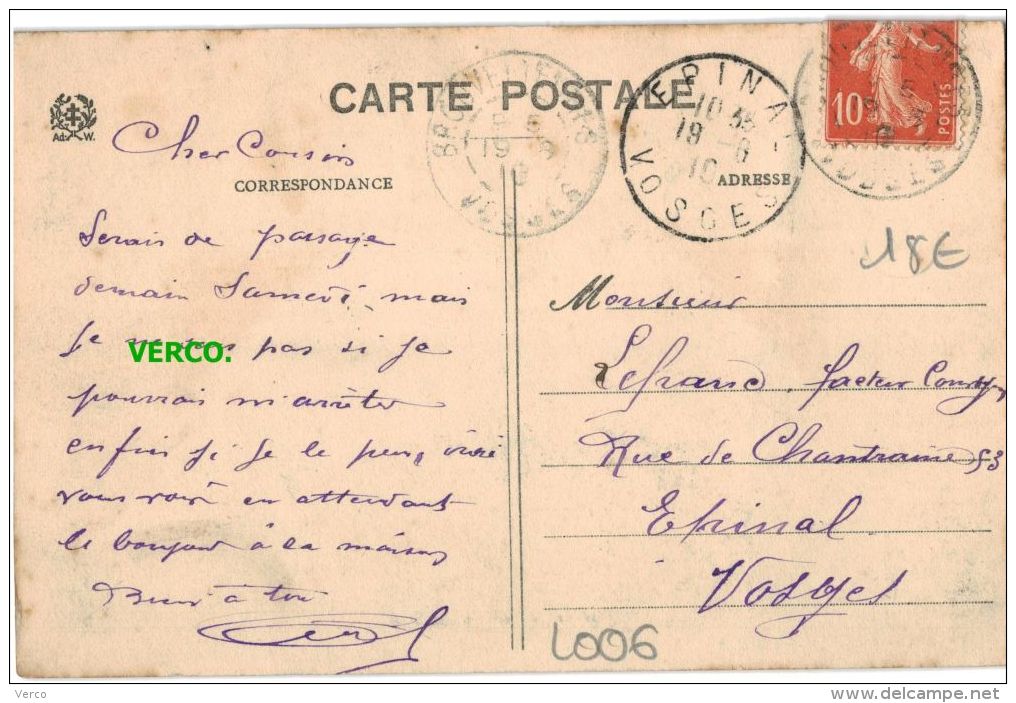 CARTE POSTALE
Ad. W.
EPINAL
10 35
19 - 6
10
VOSGES
10
POSTES
CORRESPONDANCE
ADRESSE
18€
Cher Cousin
Serais de passage
demain Samedi, mais
je ne sais pas si je
VERCO.
pourrai m'arrêter
enfin si je le peux, irai
vous voir en attendant
le bonjour à la maison
Bien à toi
Monsieur
Lefranc, facteur
Rue de Chantraine 53
Epinal
Vosges
L006
Verco
www.delcampe.net